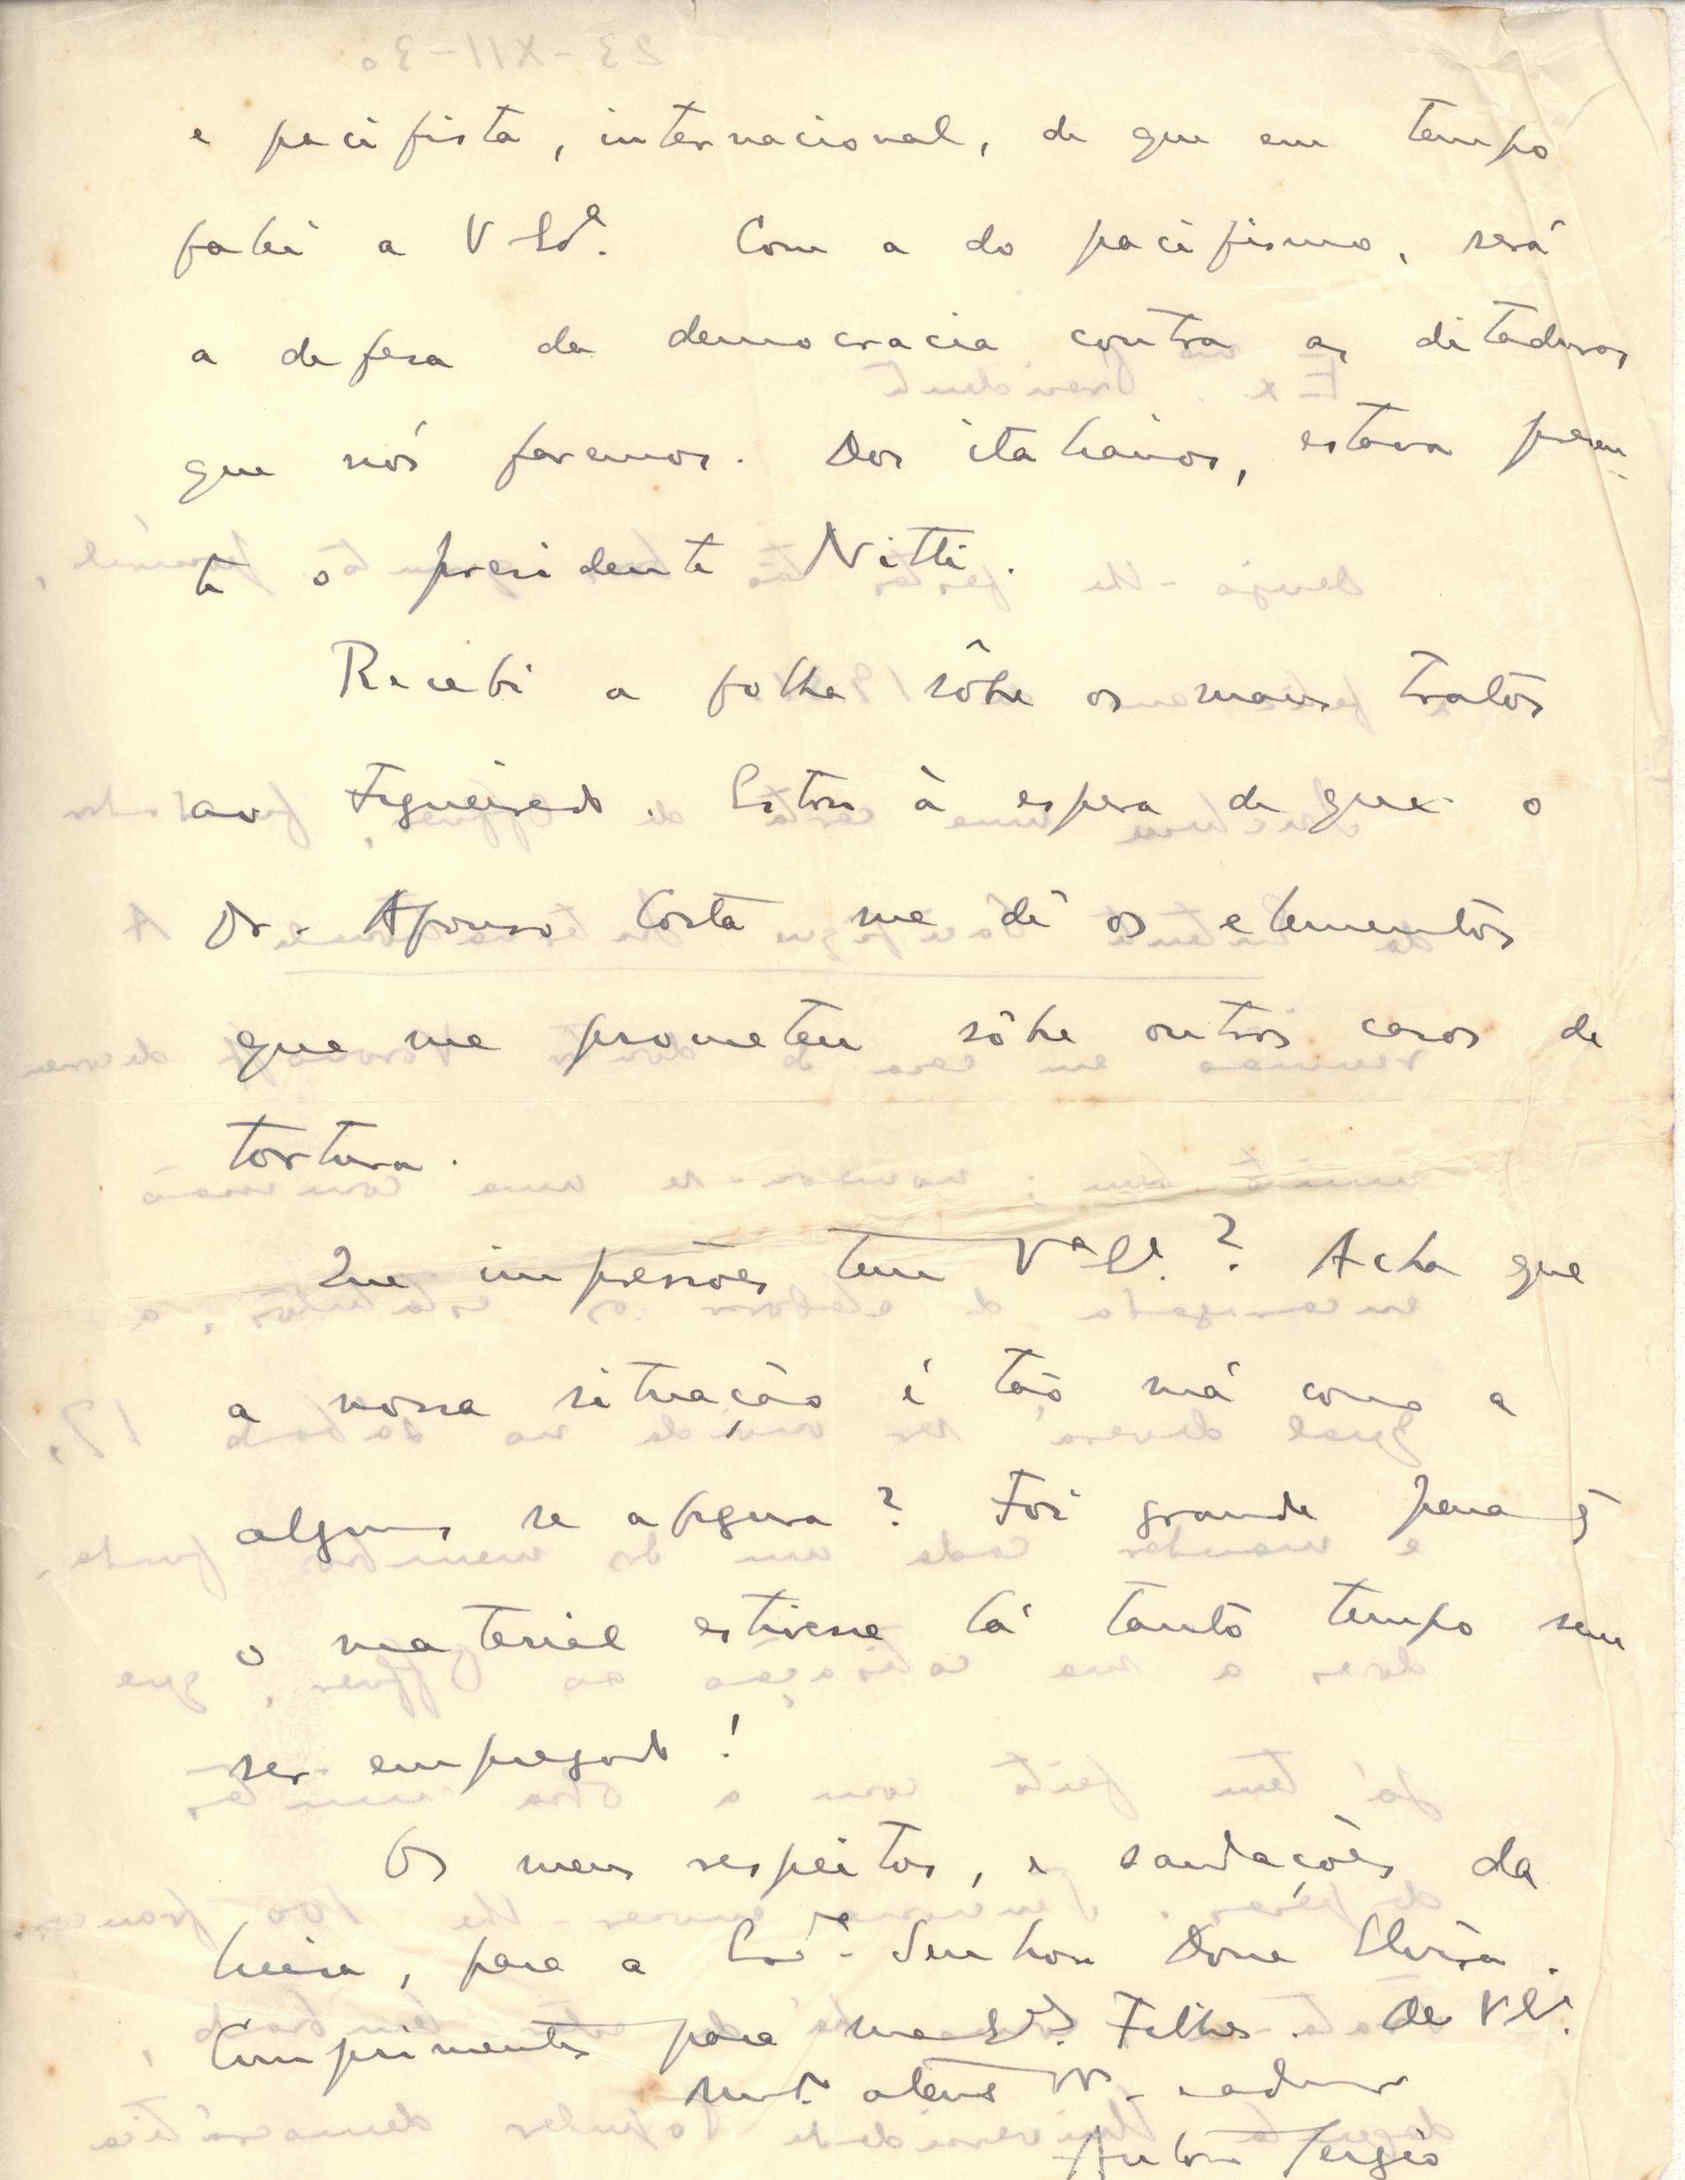 e pacifista, internacional, de que em tempo
falei a V Exª. Com a do pacifismo, será
a defesa da democracia contra as ditaduras
que nós faremos. Dos italianos, estava presen-
te o presidente Nitti.
Recebi a folha sôbre os maus tratos
ao Figueiredo. Estou à espera de que o
Dr. Afonso Costa me dê os elementos
que me prometeu sôbre outros casos de
tortura.
Que impressões tem Vª Exª.? Acha que
a nossa situação é tão má como a
alguns se afigura? Foi grande pena q̃
o material estivesse lá tanto tempo sem
ser empregado!
Os meus respeitos, e saudações da
Luisa, para a Exmª Senhora Dona Elvira.
Cumprimentos para seus Filhos. De V Exª.
mtº. atento
António Sérgio
23-XII-30